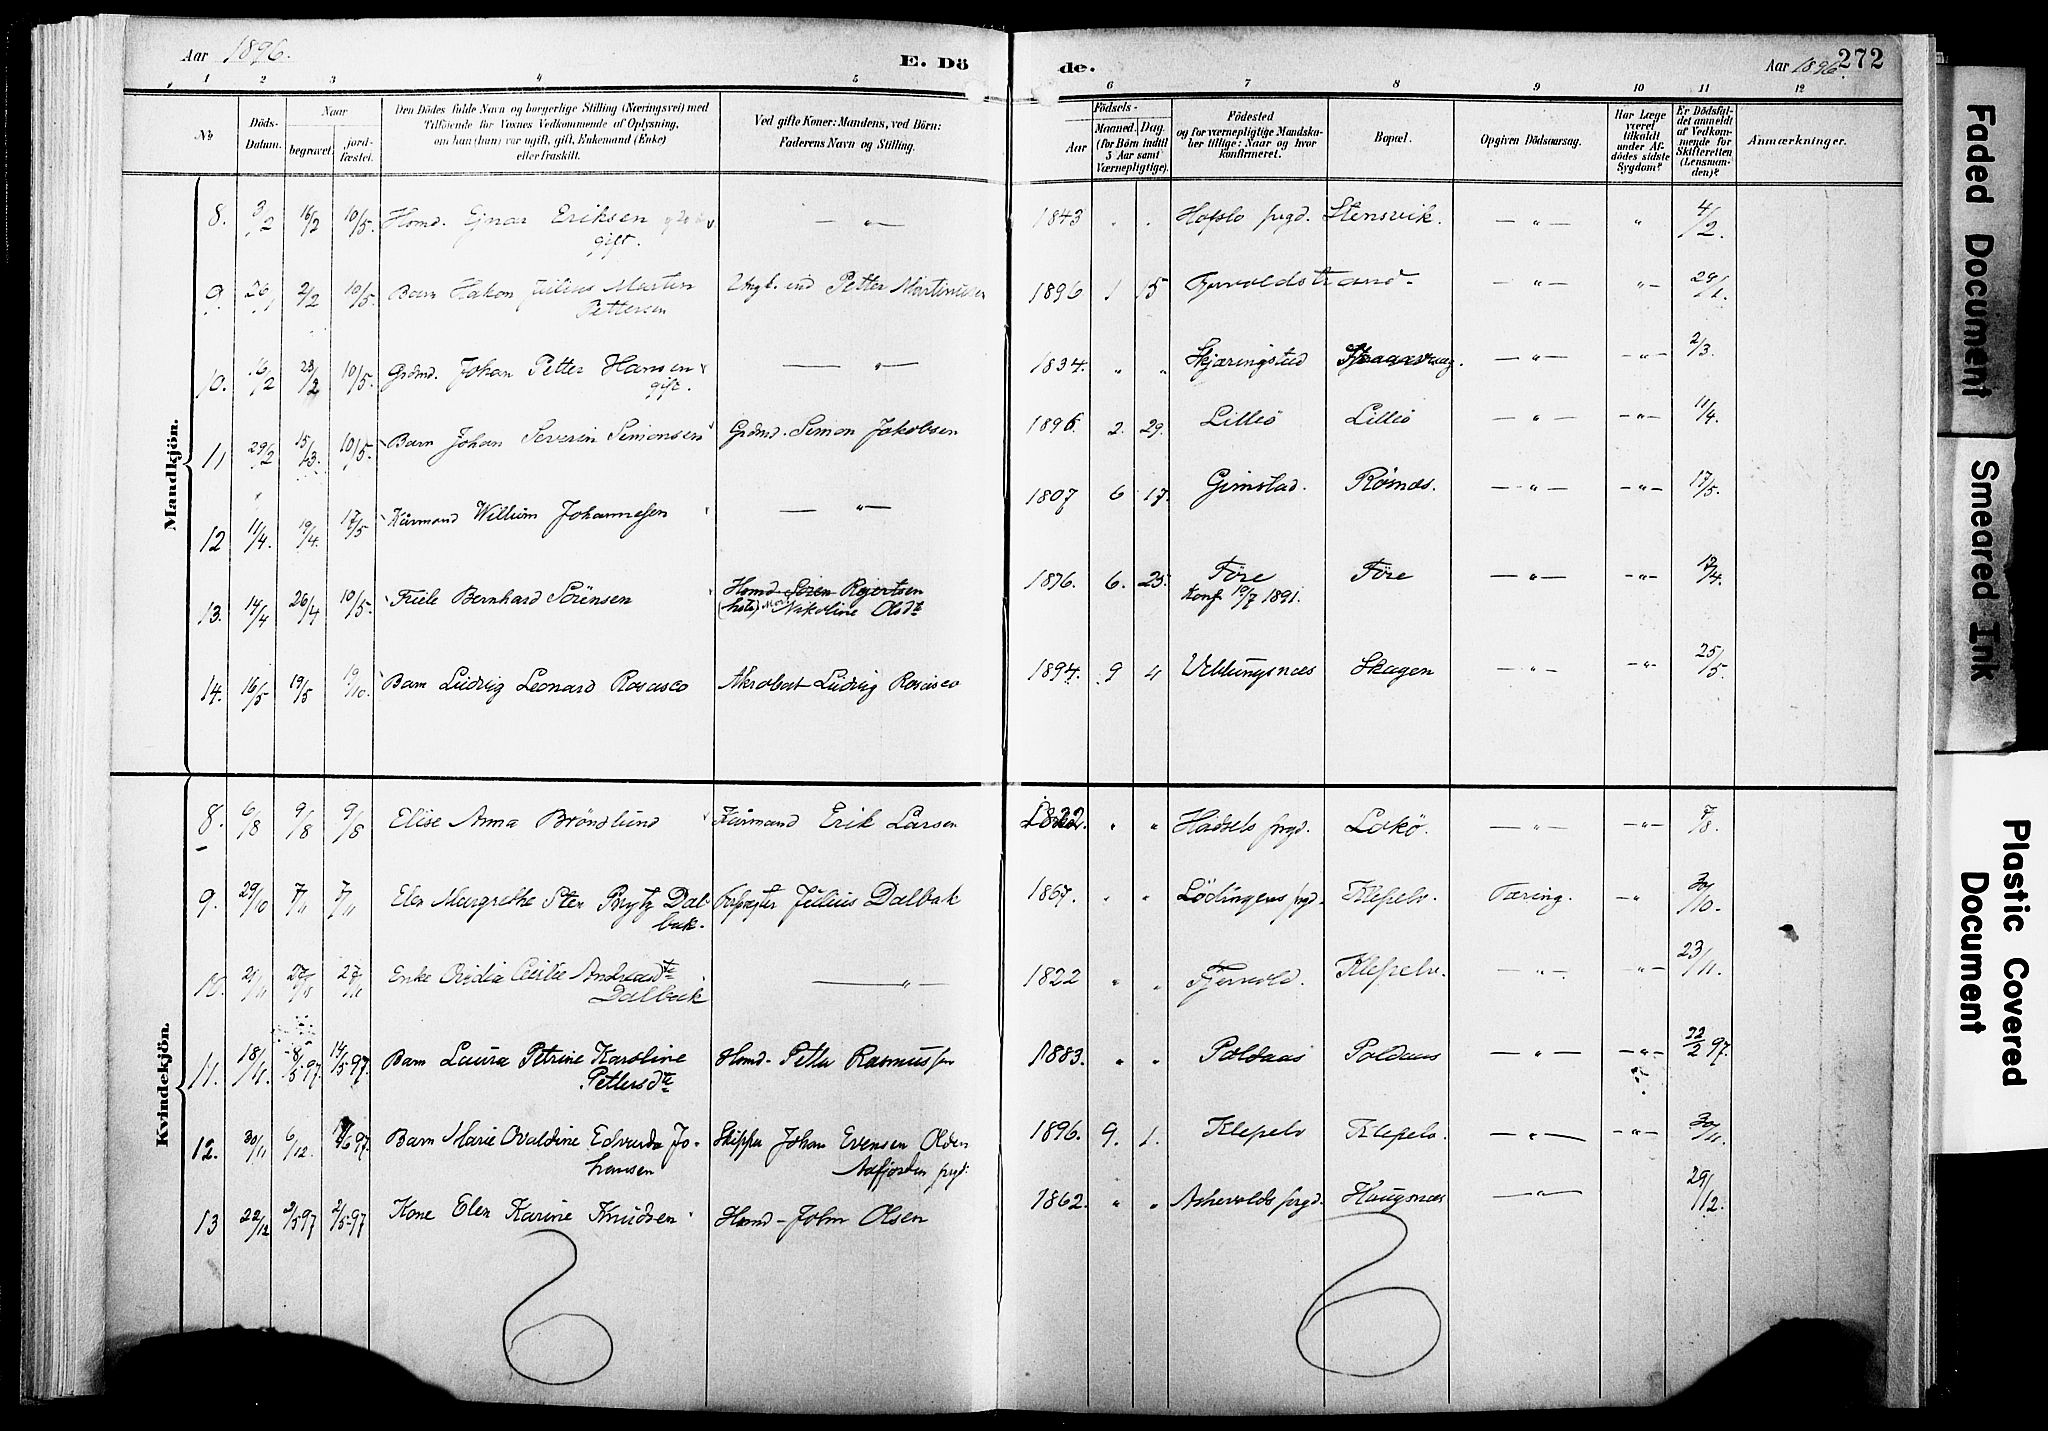 Aar 1896.
E. Dö
de.
Aar 1896.
272
1 2 3 4 5 6 7 8 9 10 11 12
No
Döds-Datum.
Naar
begravet.
jord-fæstet.
Den Dödes fulde Navn og borgerlige Stilling (Næringsvei) med
Tilföiende för Voxnes Vedkommende af Oplysning,
om han (hun) var ugift, gift, Enkemand (Enke)
eller fraskilt.
Ved gifte Koner: Mandens, ved Börn:
Faderens Navn og Stilling.
Födsels-
Aar
Maaned. Dag.
(for Börn indtil
5 Aar samt
Værnepligtige).
Födested
og for værnepligtige Mandska-
ber tillige: Naar og hvor
konfirmeret.
Bopæl.
Opgiven Dödsaarsag.
Har Læge
været
tilkaldt
under Af-
dödes sidste
Sygdom?
Er Dödsfal-
det anmeldt
af Vedkom-
mende for
Skifteretten
(Lensman-
den)?
Anmærkninger.
Mandkjön.
8. 3/2 16/2 10/5. Homd. Ejnar Eriksen — " — 1843 " " Hofslo prgd. Stensvik. — " — " 4/2.
gift.
9. 26/1 2/2 10/5. Barn Hakon Julius Martin Petter Martinusen 1896 1 15 Tjervoldstrand — " — " 29/1.
Pettersen
10. 16/2 23/2 10/5. Grdmd. Johan Petter Hansen — " — 1834. " " Skjæringstad — " — — " — 2/3.
gift.
11 29/2 15/3. 10/5. Barn Johan Severin Simonsen Grdmd. Simon Jakobsen 1896. 2. 29. Lilleö Lilleö — " — — " — 11/4.
12 11/4. 19/4. 17/5 Kårmand Willium Johannesen — " — 1807 6 17. Gimstad. Rösnæs. — " — — " — 17/5.
13. 14/4 26/4 10/5. Friele Bernhard Sörensen Homd Sören Rejertsen 1876. 6. 25. Före Före — " — — " — 17/4.
Nikoline Olsdt Konf 19/7 1891.
14. 16/5 19/5 19/10. Barn Ludvig Leonard Rosasco Akrobat Ludvig Rosasco 1894. 9 4 Veblungsnæs Skagen — " — — " — 25/5.
Kvindekjön.
8. 6/8 9/8 9/8 Elise Anna Bröndlund Kårmand Erik Larsen 1822. " " Hadsels prgd. Lokö. — " — — " — 7/8.
9. 29/10 7/11 7/11 Elen Margrethe Sten Brytz Dal- Forpagter Julius Dalbak 1867. " " Lödingens prgd. Klepelv. Tæring. — " 30/10.
bak.
10. 21/11 27/11 27/11 Enke Ovidia Cecilie Andreasdt — " — 1822 " " Tjervold. Klepelv. — " — — " — 23/11.
Dalbak
11. 18/11. 8/5 97. 14/5 97. Barn Laura Petrine Karoline Homd. Petter Rasmussen 1883. " " Poldaas Poldaas — " — — " — 22/2 97.
Pettersdt
12. 30/11 6/12. 6 97. Barn Marie Ovaldine Edvarda Jo- Skipper Johan Evensen Olden 1896. 9. 1. Klepelv Klepelv. — " — — " — 30/11.
hansen Aafjorden prgd.
13 22/12 2/5 97 2/5 97 Kone Elen Karine Knudsen Homd. John Olsen 1862. " " Askevolds prgd. Haugsnæs — " — 29/12.
6 6
Faded Document
Smeared Ink
Plastic Covered
Document